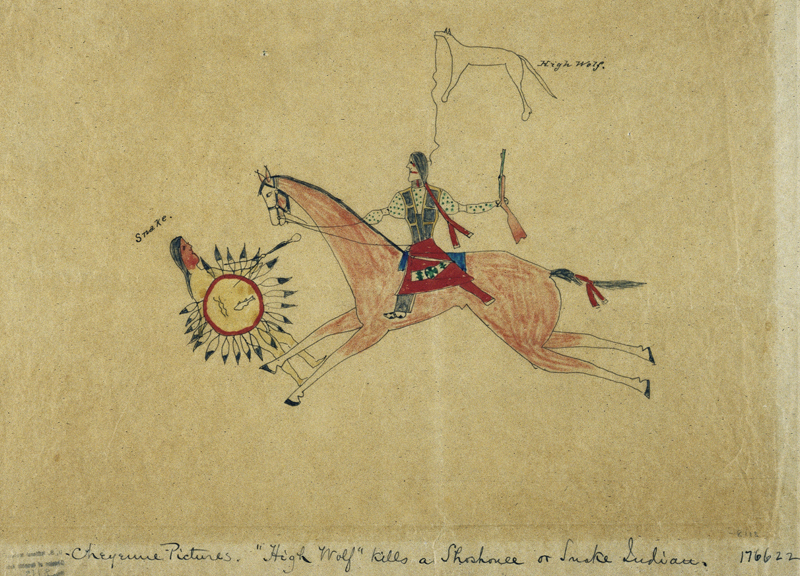 High Wolf.
Snake.
Cheyenne Pictures. "High Wolf" kills a Shoshonee or Snake Indian. 176622